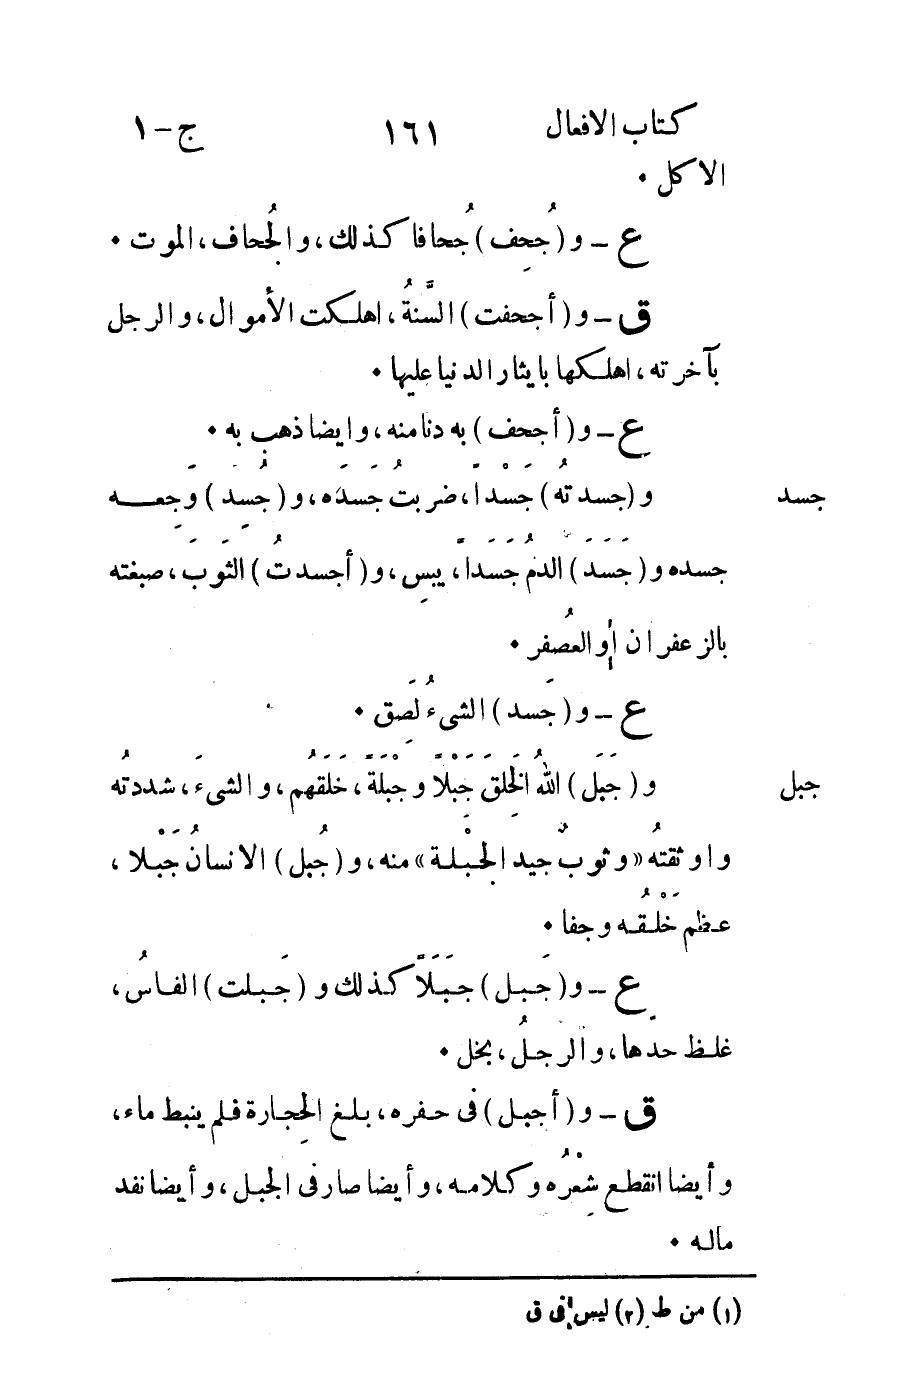 كتاب الافعال ١٦١ ج-١
الاكل ٠
ع – و (جُحِف) جُحافا كذلك، والجُحاف، الموت ٠
ق – و (أجحفت) السَّنةُ، اهلكت الأموال، والرجل
بآخرته، اهلكها بايثار الدنيا عليها ٠
ع – و (أجحف) به دنا منه، وايضا ذهب به ٠
جسد و (جسدتهُ) جَسْداً، ضربتُ جَسَدَه، و (جُسِدَ) وَجِعه
جسده و (جَسَدَ) الدمُ جَسَداً، يبِس، و (أجسدتُ) الثوبَ، صبغته
بالزعفران أو العُصفر ٠
ع – و (جَسد) الشىءُ لَصِق ٠
جبل و (جَبَل) اللهُ الخَلقَ جَبْلاً وجِبْلَةً، خلقَهُم، والشىءَ، شددتُه
واوثقتُه «وثوبٌ جيد الجِبْلة» منه، و (جُبل) الانسانُ جَبْلا،
عظم خَلْقُه وجفا ٠
ع – و (جَبل) جَبَلاً كذلك و (جَبلت) الفاسُ،
غلظ حدها، والرجلُ، بخل ٠
ق – و (أجبل) فى حفره، بلغ الحِجارة فلم ينبط ماء،
وأيضا انقطع شِعْرُه وكلامه، وأيضا صار فى الجبل، وأيضا نفد
ماله ٠
(١) من ط (٢) ليس فى ق